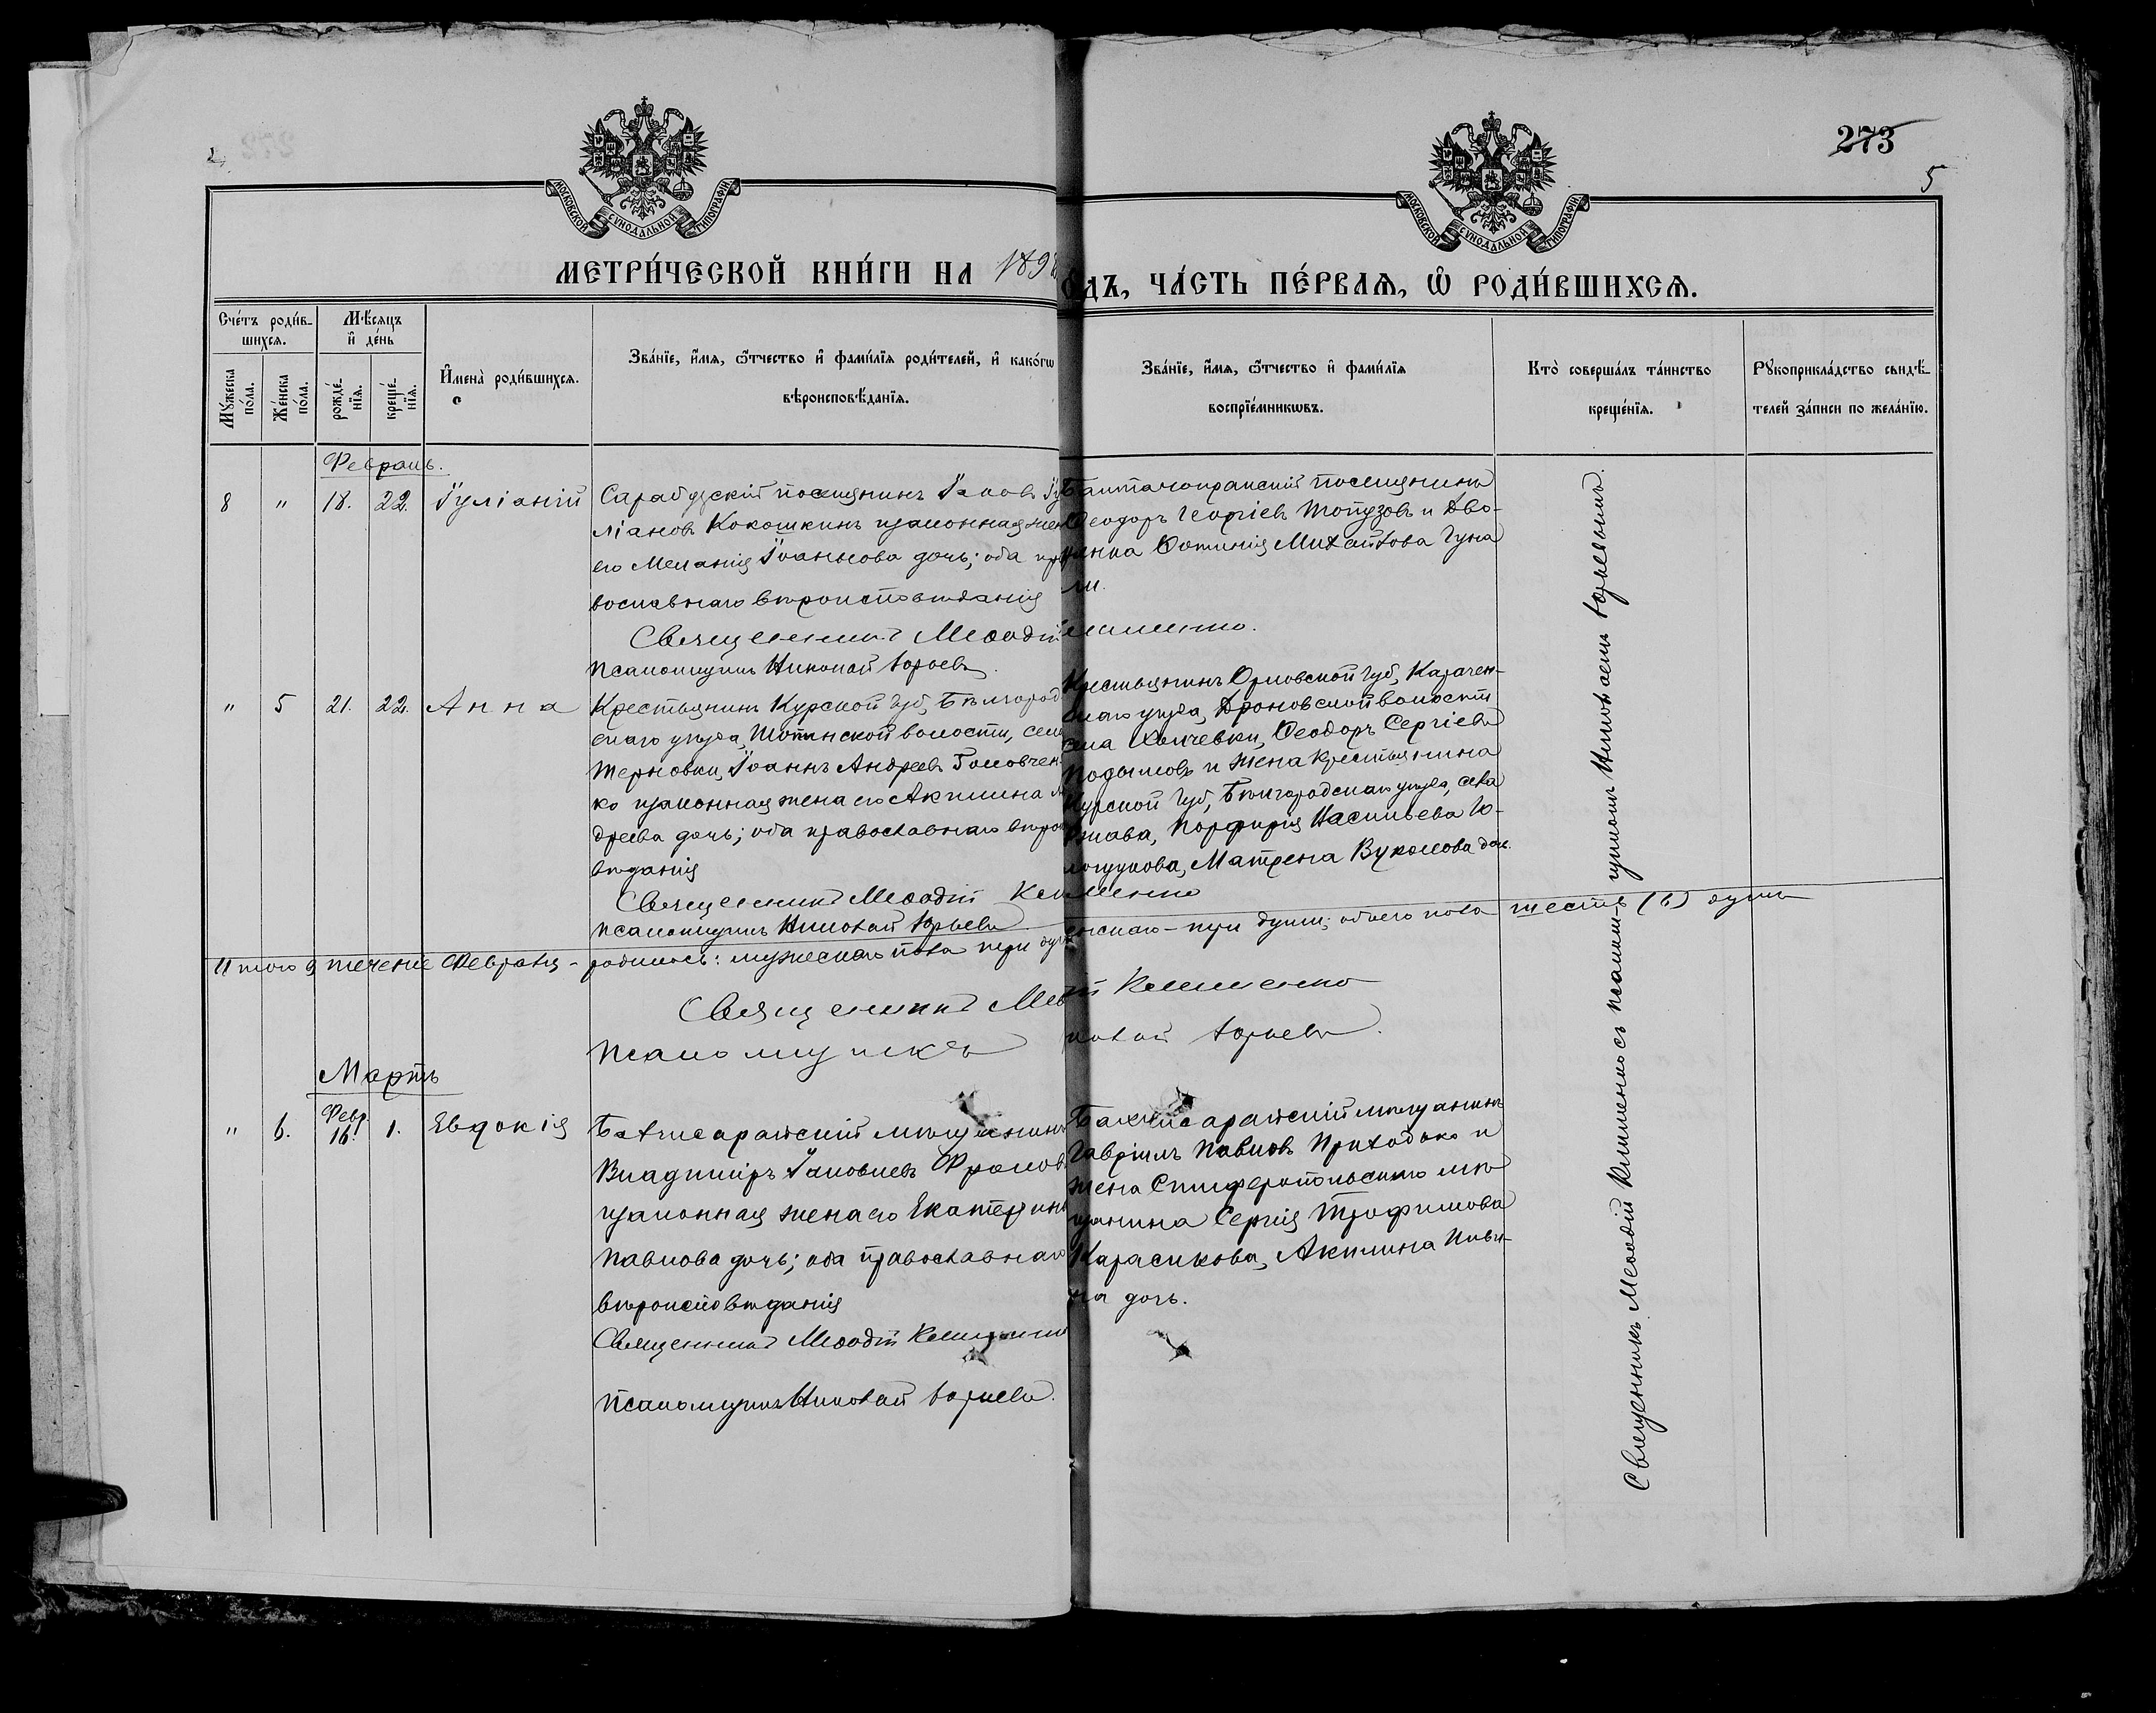 273
5
МОСКОВСКОЙ СѴНОДАЛЬНОЙ ТИПОГРАФІИ.
МОСКОВСКОЙ СѴНОДАЛЬНОЙ ТИПОГРАФІИ.
МЕТРИ́ЧЕСКОЙ КНИ́ГИ НА 189
ОДЪ, ЧА́СТЬ ПЕ́РВАѦ, Ѡ҆ РОДИ́ВШИХСѦ.
Сче́тъ роди́в-
шихсѧ.
Мѣ́сѧцъ
и҆ де́нь
Мꙋ́жеска по́ла.
Же́нска по́ла.
рожде́-нїѧ.
креще́-нїѧ.
И҆мена̀ роди́вшихсѧ.
Зва́нїе, и҆́мѧ, ѻ҆́тчество и҆ фами́лїѧ роди́телей, и҆ како́гѡ
вѣроисповѣ́данїѧ.
Зва́нїе, и҆́мѧ, ѻ҆́тчество и҆ фами́лїѧ
воспрїе́мникѡвъ.
Кто̀ соверша́лъ та́инство
креще́нїѧ.
Рꙋкоприкла́дство свидѣ́-
телей за́писи по жела́нїю.
Февраль.
8 " 18. 22. Іуліаній
Сарабузскій поселянинъ Іаковъ Іу
ліановъ Кокошкинъ и законная жен
его Меланія Іоаннова дочь; оба пра
вославнаго вѣроисповѣданія
Священникъ Меѳодій
Псаломщикъ Николай Юрьевъ.
поселянинъ
Ѳеодоръ Георгіевъ Топузовъ и Дво-
рянка Фотинія Михайлова Гуна
ли.
лименко.
" 5 21. 22. Анна
Крестьянинъ Курской губ, Бѣлгород
скаго уѣзда, волости, села
Терновки, Іоаннъ Андреевъ Головчен-
ко и законная жена его Акилина Ан
дреева дочь; оба православнаго вѣроис
вѣданія
Священникъ Меѳодій Клименко
Псаломщикъ Николай Юрьевъ
Крестьянинъ Орловской губ, Карачев-
скаго уѣзда, Дроновской волости
села Хотчевки, Ѳеодоръ Сергіевъ
и жена крестьянина
Курской губ, Бѣлгородскаго уѣзда, села
Порфирія Васильева
Матрена Вуколова доч.
Итого въ теченіе Февраля - родилось: мужескаго пола три душ
женскаго - три души; обоего пола шесть (6) душъ
Священникъ Меѳ
ій Клименко
Псаломщикъ
колай Юрьевъ.
Мартъ
" 6. Февр. 16. 1. Евдокія
Бахчисарайскій мѣщанинъ
Владиміръ Іаковлевъ Фролов
и законная жена его Екатерина
Павлова дочь; оба православнаго
вѣроисповѣданія
Священникъ Меѳодій Клименко
Псаломщикъ Николай Юрьевъ.
Бахчисарайскій мѣщанинъ
Гавріилъ Павловъ Приходько и
жена Симферопольскаго мѣ
щанина Сергія Трофимова
Карасикова, Акилина
на дочь.
Священникъ Меѳодій Клименко съ псаломщикомъ Николаемъ Юрьевымъ.